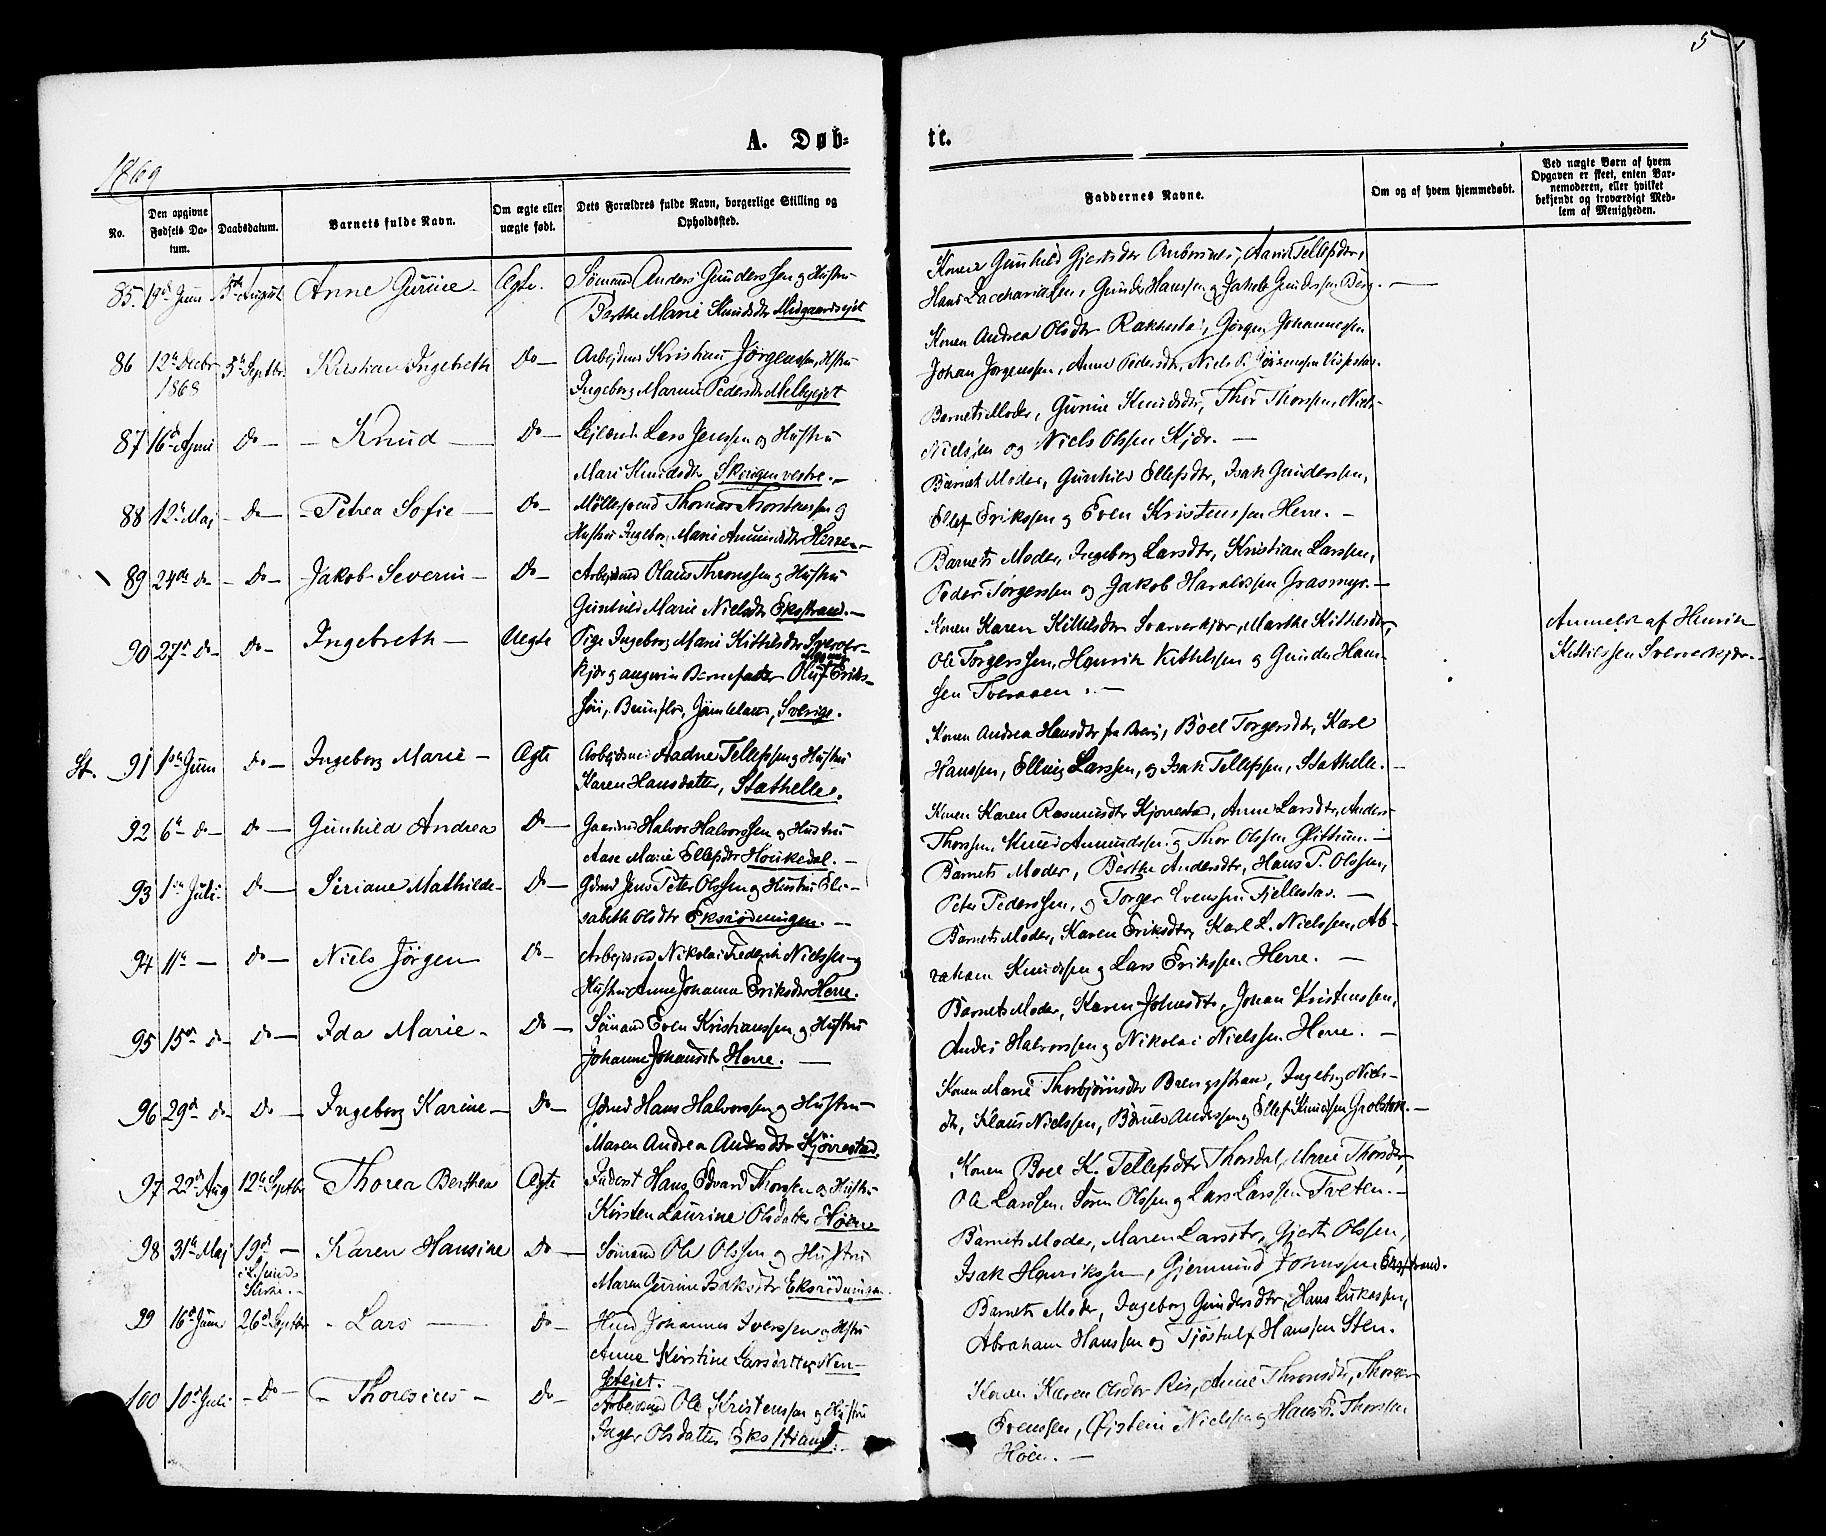 5
1869
A. Døb=
te.
No.
Den opgivne Fødsels Datum.
Daabsdatum.
Barnets fulde Navn.
Om ægte eller uægte født.
Dets Forældres fulde Navn, borgerlige Stilling og Opholdssted.
Faddernes Navne.
Om og af hvem hjemmedøbt.
Ved uægte Børn af hvem Opgaven er skeet, enten Barnemoderen, eller hvilket bekjendt og troværdigt Medlem af Menigheden.
85. 19de Juni 5te August Anne Gurine Ægte. Sømand Anders Gunderssen og Hustru
Berthe Marie Knudsdtr Midgaardsejet
Konen Gunhild Gjertsdtr Aarid Tellefsdtr,
Hans Zacchariasen, Gunder Hanssen og Jakob Gunderssen Berg. —
86 12te Decbr 1868 5te Septbr. Kristian Ingebreth Do — Arbejdsmd Kristian Jørgenssen, Hstru
Ingeborg Marie Pedersdtr Melbyejet
Konen Andrea Olsdtr Rakkestad, Jørgen Johannessen
Johan Jørgenssen, Anne Pedersdtr, Niels P.
87 16de April Do — Knud — Do — Lejlænd. Lars Jenssen og Hustru
Mari Knudsdtr Skougen vestre. —
Barnets Moder, Gurine Knudsdtr, Thor Thorssen, Niels
Nielssen og Niels Olssen Kjær. —
88 12te Maj — Do — Petrea Sofie — Do — Møllersvend Thomas Thorstenssen og
Hustru Ingeborg Marie Amundsdtr Herre. —
Barnets Moder, Gunhild Ellefsdtr, Isak Gunderssen,
Ellef Erikssen og Even Kristenssen Herre. —
89 24de Do — Do — Jakob Severin — Do — Arbejdsmd Olaus Thronssen og Hustru
Gunhild Marie Nielsdtr Ekstrand. —
Barnets Moder, Ingeborg Larsdtr, Kristian Larssen,
Peder Torgerssen og Jakob Haraldssen Grasmyr. —
90 27de Do — Do — Ingebreth — Uægte Pige Ingeborg Marie Kittilsdtr Sverver-
kjær og angiven Barnefader Oluf Eriks-
sön, Brunflod, Jämtland, Sverige.
Konen Karen Kittilsdtr Svarverkjær, Marthe Kittilsdtr,
Ole Torgerssen, Henrik Kittilssen og Gunder Hans-
sen Tveraaen. —
Anmeldt af Henrik
Kittilssen Sververkjær. —
St. 91 1ste Juni Do — Ingeborg Marie — Ægte Arbejdsmd Aadne Tellefssen og Hustru
Karen Hansdatter, Stathelle.
Konen Andrea Hansdtr fra Berg, Boel Torgersdtr, Karl
Hanssen, Elling Larssen, og Isak Tellefssen, Stathelle. —
92 6te Do — Do — Gunhild Andrea Do — Gaardmd Halvor Halvorssen og Hustru
Aase Marie Ellefsdtr Houkedal. —
Konen Karen Rasmusdtr Kjørrestad, Anne Larsdtr, Anders
Thorssen, Knud Amundssen og Thor Olssen Glittum. —
93 1ste Juli Do — Siriane Mathilde — Do — Gdmd Jens Peter Olssen og Hustru Eli-
sabeth Olsdtr Eksrödningen. —
Barnets Moder, Berthe Andersdtr, Hans P. Olssen,
Peter Pederssen, og Torger Evenssen Fjellestad. —
94 11te — Do — Niels Jörgen Do — Arbejdsmd Nikolai Frederik Nielssen og
Hustru Anne Johanne Eriksdtr Herre.
Barnets Moder, Karen Eriksdtr, Karl L. Nielssen, Ab-
raham Knudssen og Lars Erikssen Herre. —
95 15de Do — Do — Ida Marie — Do — Sømand Even Kristianssen og Hustru
Johanne Johansdtr Herre. —
Barnets Moder, Karen Johnsdtr, Johan Kristenssen,
Anders Halvorssen og Nikolai Nielssen Herre. —
96 29de Do Do — Ingeborg Karine — Do — Gdmd Hans Halvorssen og Hustru
Maren Andrea Andersdtr Kjørrestad.
Konen Marie Thorbjörnsdtr Brengsstrau, Ingeborg Niels-
dtr, Klaus Nielssen, Anderssen og Ellef Knudssen Grobstok. —
97 22de Aug 12te Septbr Thorea Berthea Ægte Inderst Hans Edvard Thorssen og Hustru
Kirsten Laurine Olsdatter Höen
Konen Boel K. Tellefsdtr Thorsdal, Marie Thorsdtr,
Ole Larssen, Sören Olssen og Lars Larssen Tveten. —
98 31te Maj 19de — i Lsunds Kirke. — Karen Hansine Do — Sømand Ole Olssen og Hustru
Maren Gurine Isaksdtr Eksrödningen.
Barnets Moder, Maren Larsdtr, Gjert Olssen,
Isak Henrikssen, Gjermund Ekstrand.
99 16de Juni 26de Septbr — Lars — Do — Husmd Johannes Iverssen og Hstru
Anne Kirstine Larsdtter Nen-
setejet.
Barnets Moder, Ingeborg Gundersdtr, Hans Lukassen,
Abraham Hanssen og Tjöstulf Hanssen Sten.
100 10de Juli — Do — Thoresius — Do — Arbejdsmd Ole Kristenssen og Hustru
Inger Olsdatter Ekstrand.
Konen Karen Olsdtr Ris, Anne Thronsdtr, Thorger
Evenssen, Øistein Nielssen og Hans E. Thorssen
Höen. —